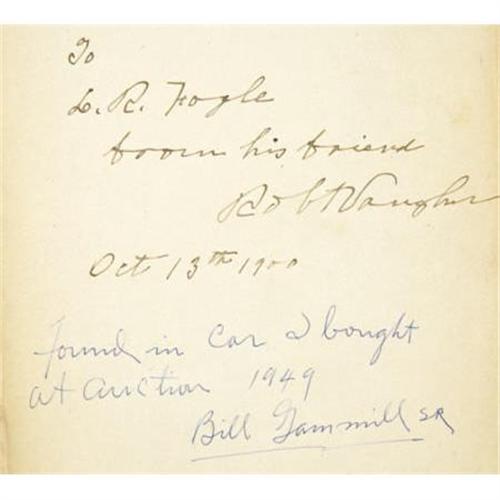 To
L. R. Fogle
from his friend
Robt Vaughn
Oct 13th 1900
Found in car I bought
at auction 1949
Bill Gammill SR